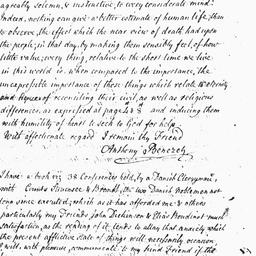 agreeably solemn, & instructive, to every considerate mind:
Indeed, nothing can give a better estimate of human life, than
to observe, the effect which the near view of death had upon
the people, in that day, by making them sensibly feel, of how
little value, every thing, relative to the short time we live
in this world is, when compared to the importance, the
unexpressible importance of those things which relate to eternity
and of reconciling their civil, as well as religious
differences, as expressed at page & and inducing them
with humility of heart to seek to God for help.
With affectionate regard I remain thy Friend
Anthony Benezet
I have a book viz. 38 Conferences held, by a Danish Clergyman,
with Counts Struensee & Brandt, the two Danish Noblemen not
long since executed; which as it has afforded me & others
particularly my Friends John Dickinson & Elias Boudinot much
satisfaction, as the reading of it tends to allay that anxiety which
the present afflictive state of things will necessarily occasion,
I will, with pleasure, communicate to my kind Friend if the